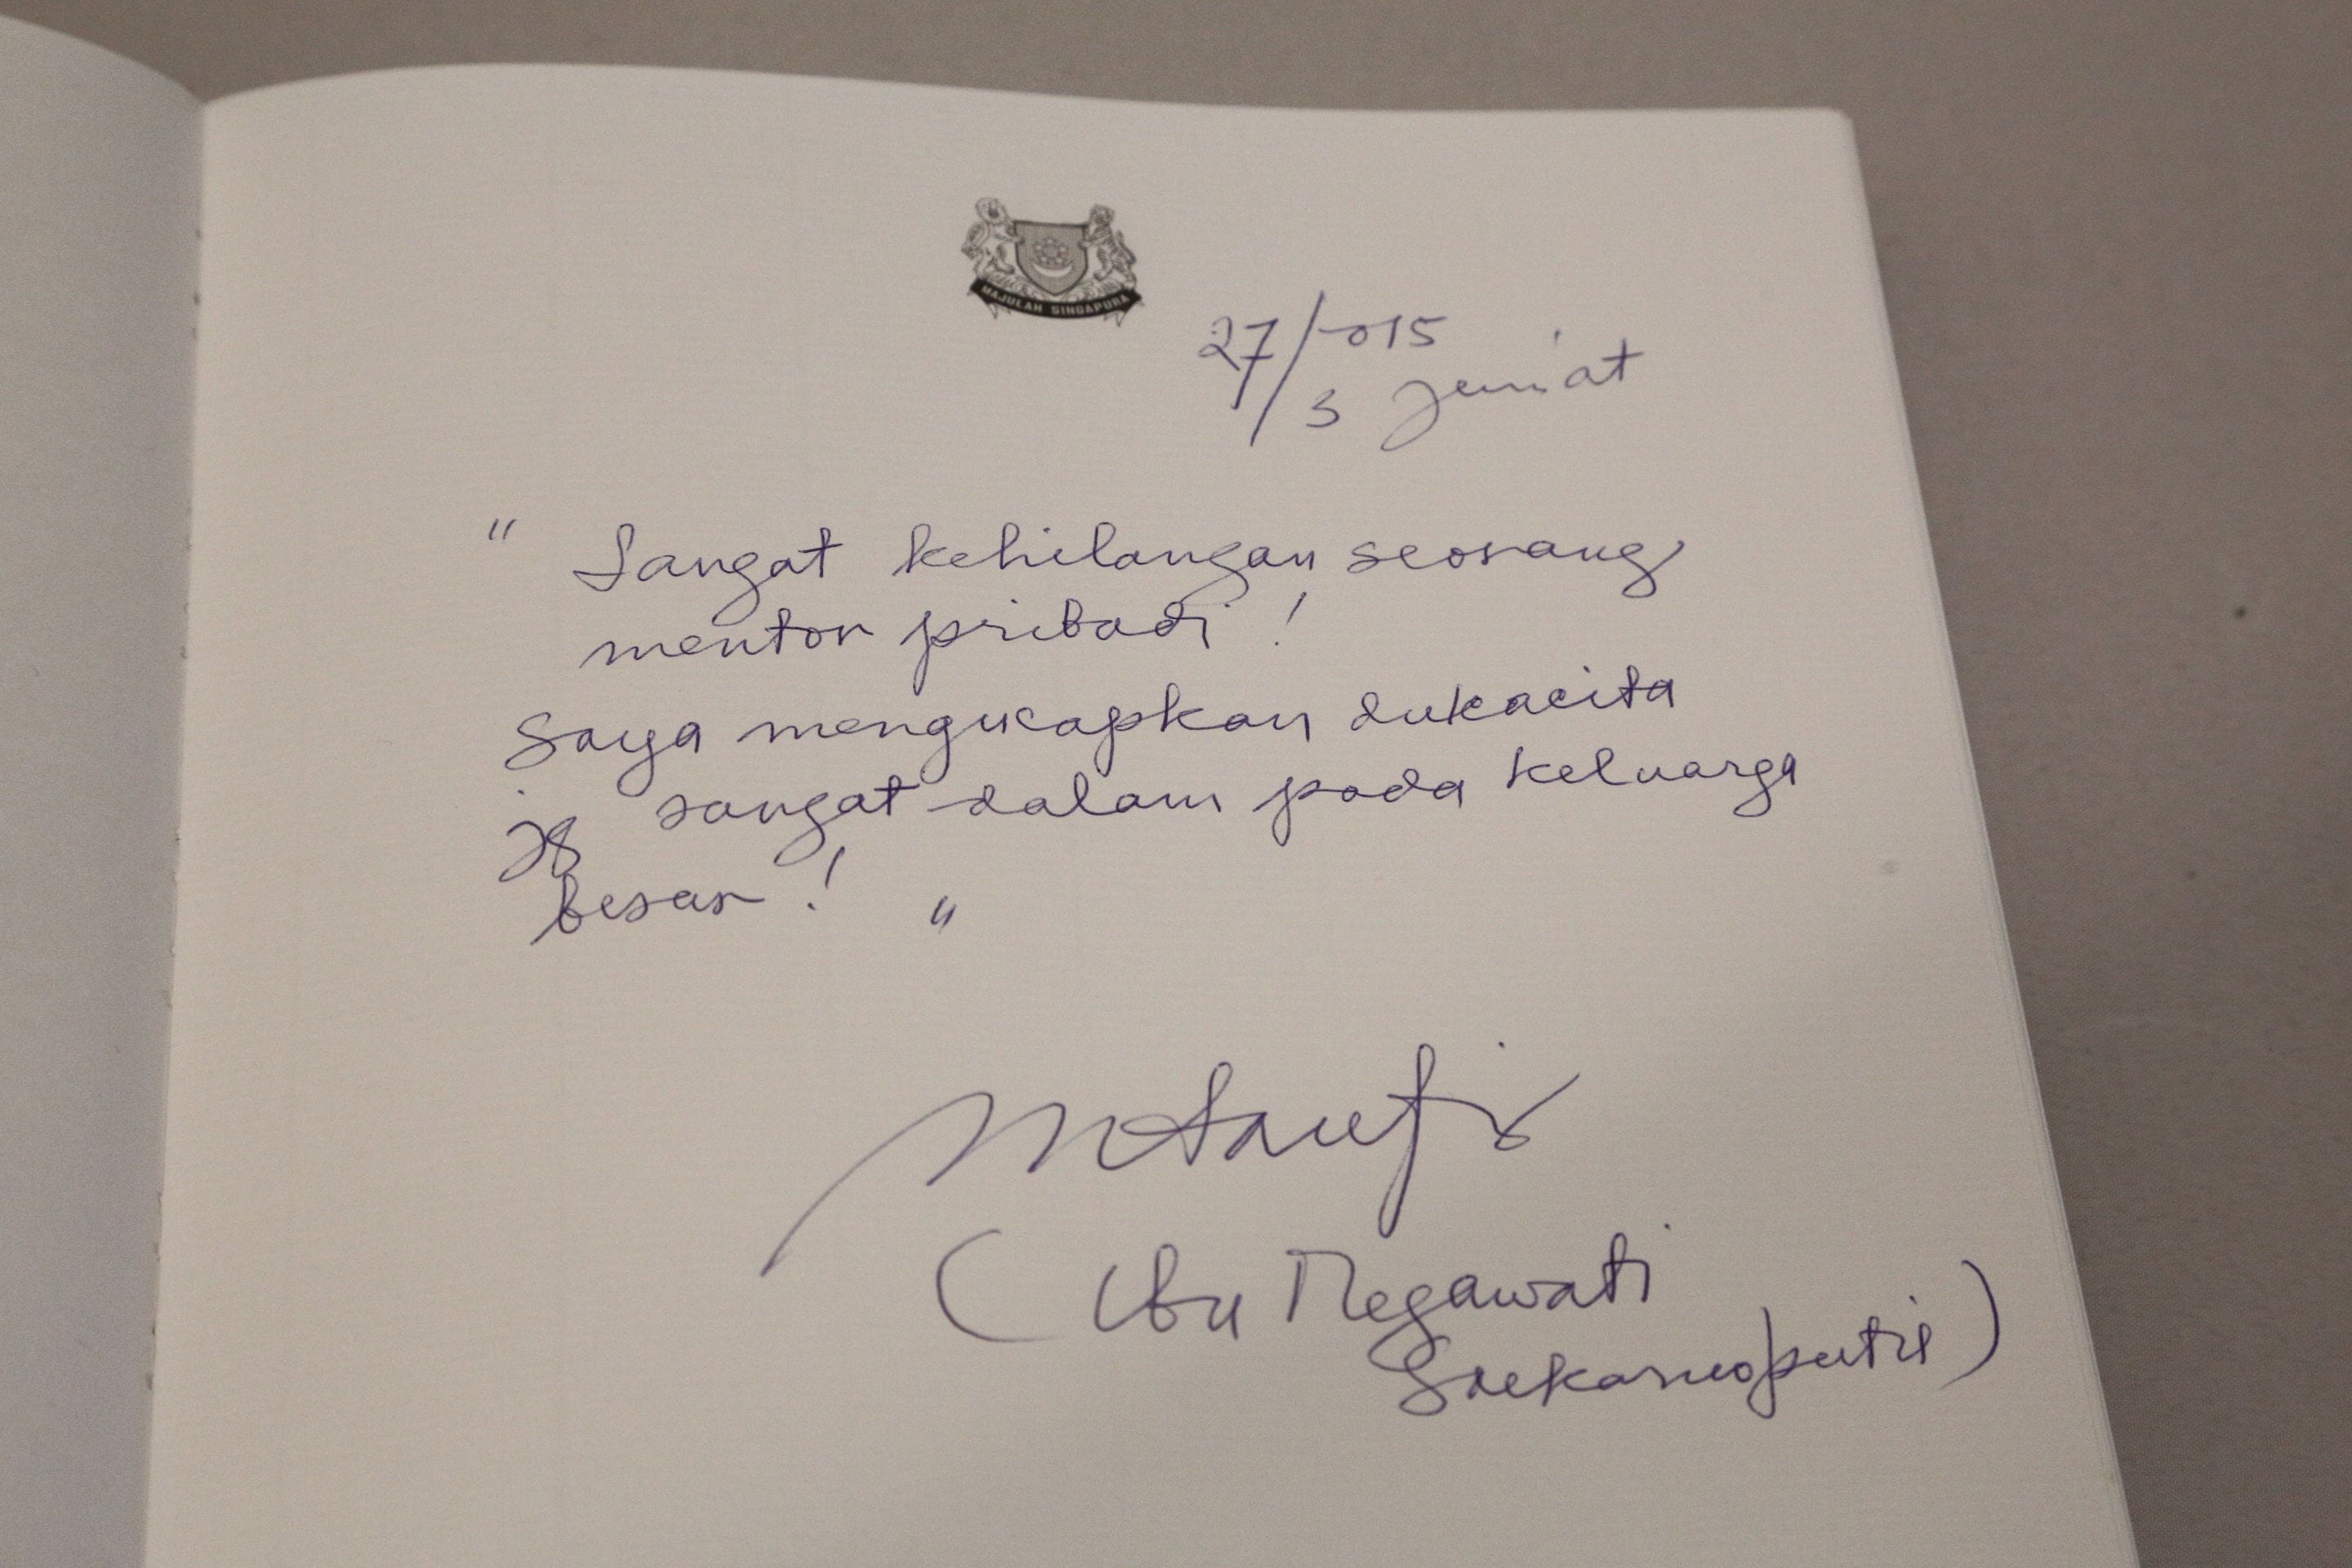 MAJULAH SINGAPURA
27/3 2015
Jum'at
" Sangat kehilangan seorang
mentor pribadi !
Saya mengucapkan dukacita
yg sangat dalam pada keluarga
besar ! "
(Ibu Megawati
Soekarnoputri)